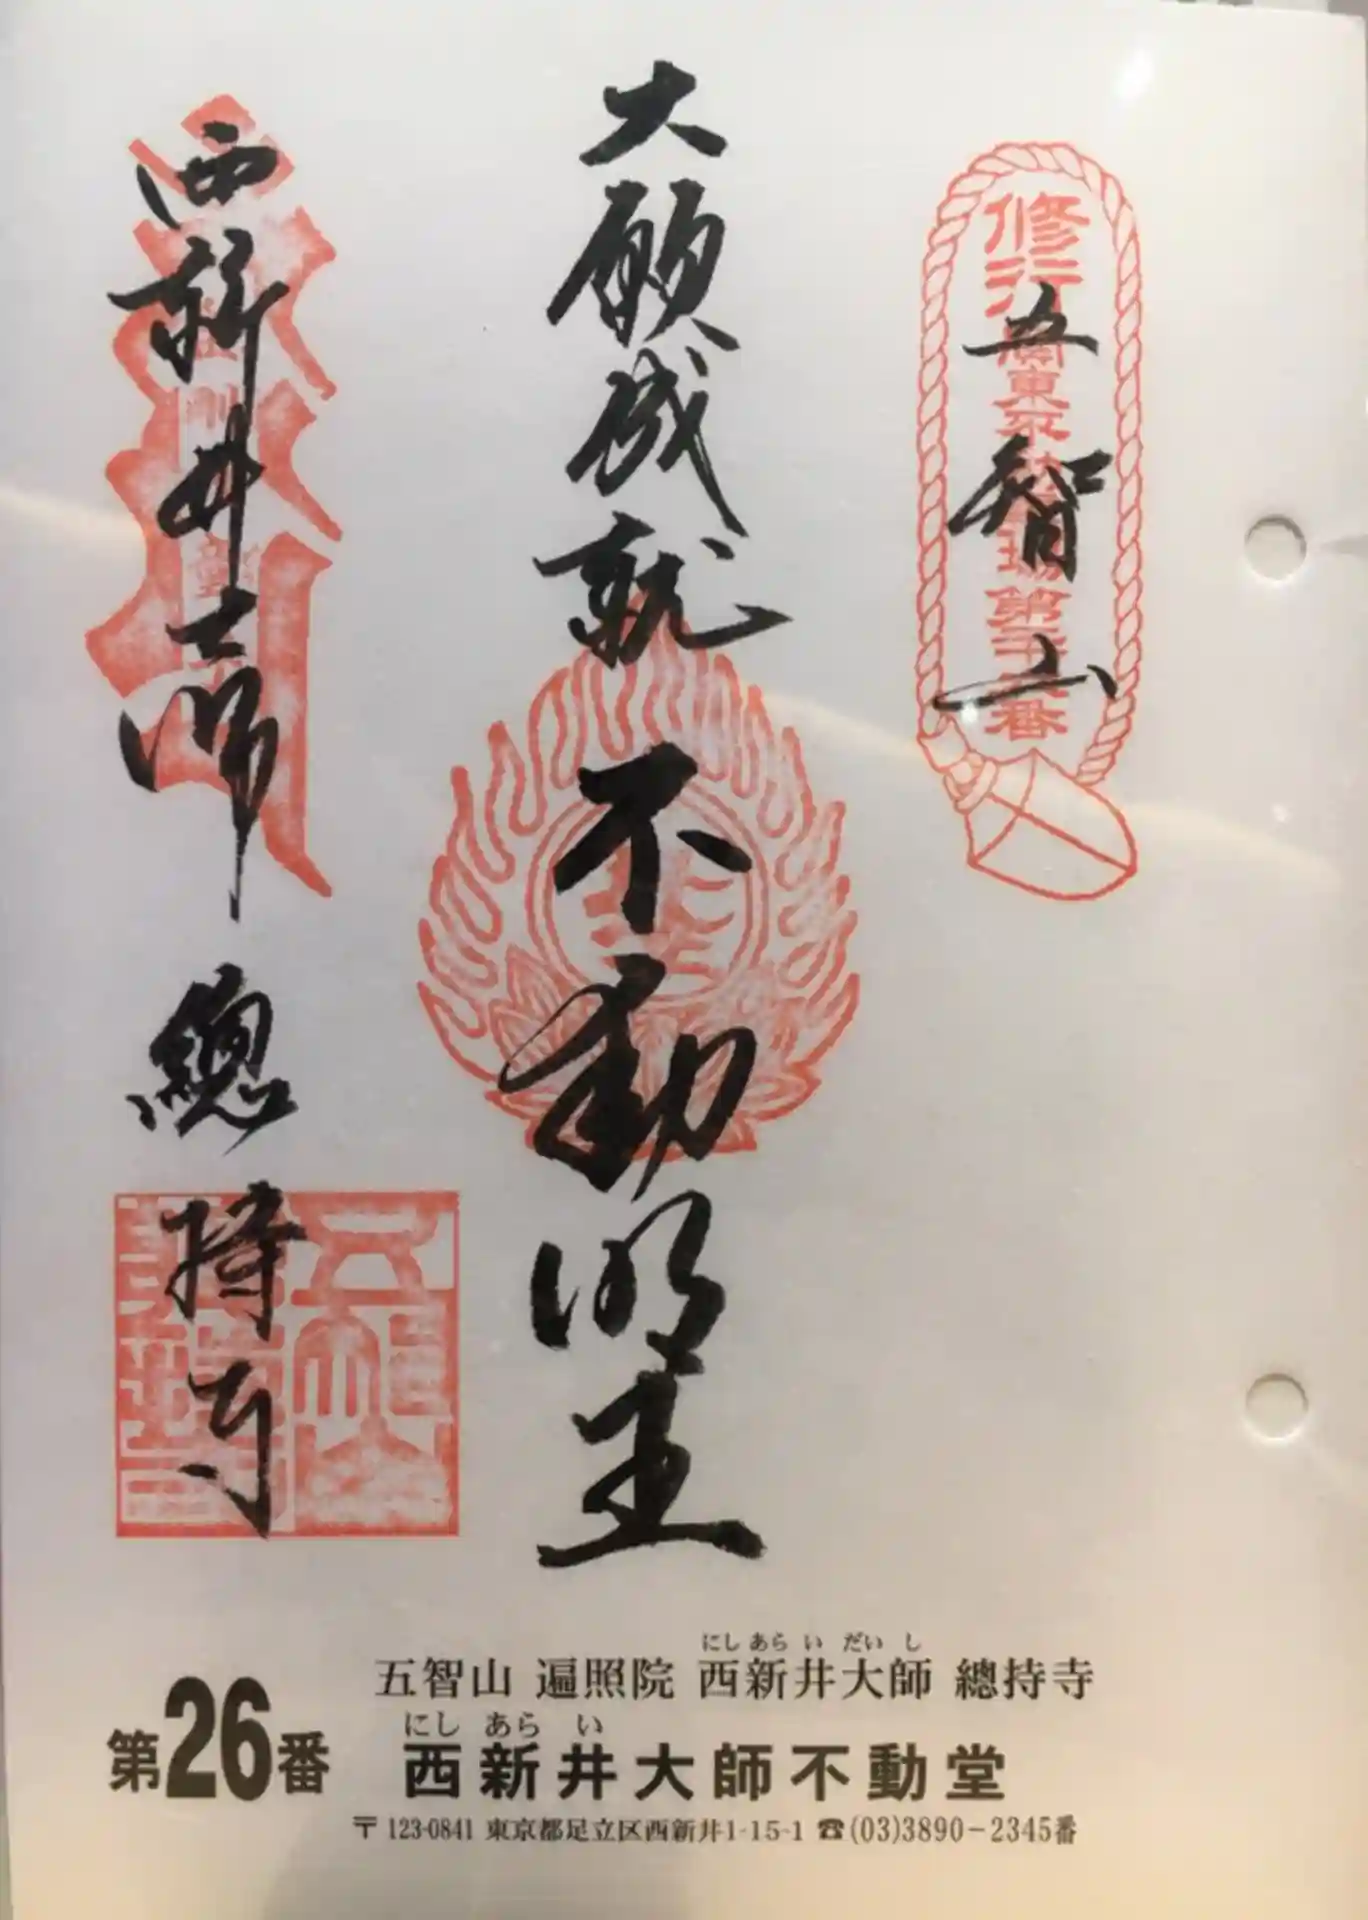 五智山
大願成就
不動明王
西新井大師
總持寺
にしあらいだいし
五智山 遍照院 西新井大師 總持寺
第26番
にしあらい
西新井大師不動堂
〒123-0841 東京都足立区西新井1-15-1 ☎(03)3890-2345番